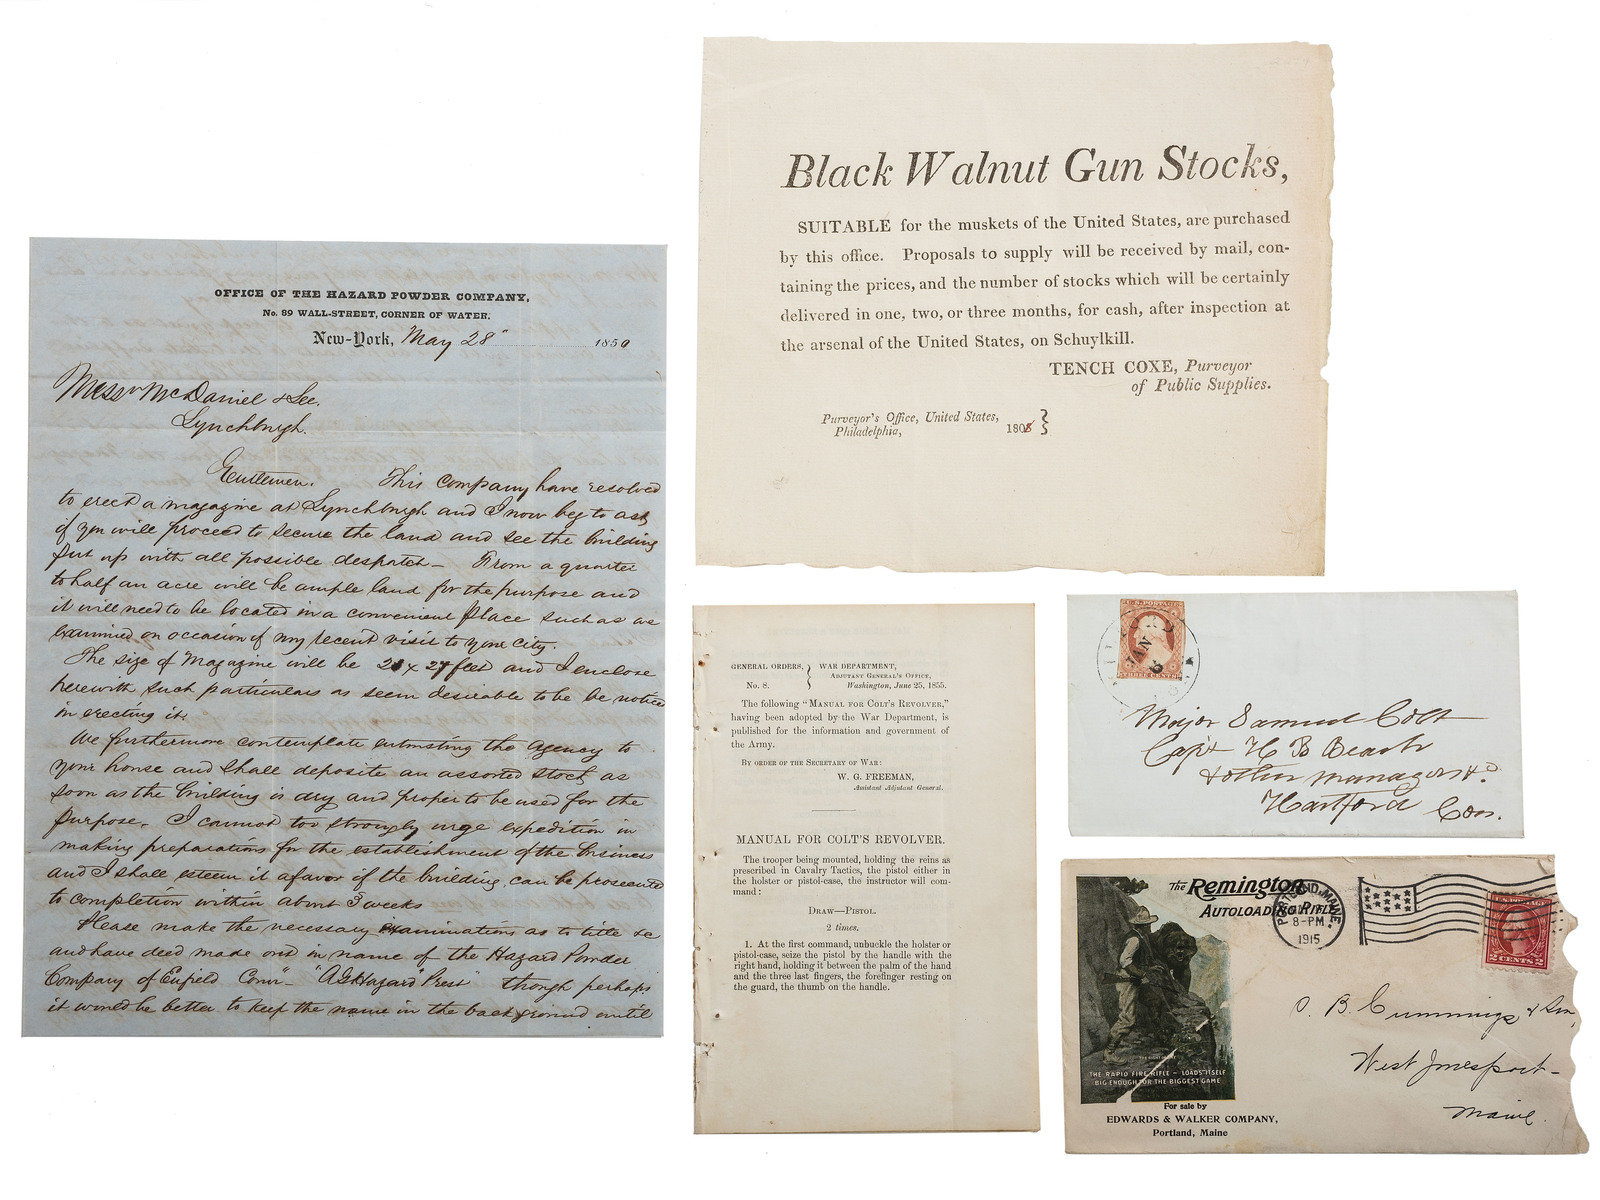 OFFICE OF THE HAZARD POWDER COMPANY,
No. 89 WALL-STREET, CORNER OF WATER.
New-York, May 28" 1850
Messrs McDaniel & Lee.
Lynchburgh.
Gentlemen. This Company have resolved
to erect a magazine at Lynchburgh and I now beg to ask
if you will proceed to secure the land and see the building
put up with all possible despatch — From a quarter
to half an acre will be ample land for the purpose and
it will need to be located in a convenient place such as we
examined on occasion of my recent visit to your City.
The size of Magazine will be 21 x 27 feet and I enclose
herewith such particulars as seem desirable to be be noticed
in erecting it.
We furthermore contemplate entrusting the Agency to
your house and shall deposite an assorted stock as
soon as the building is dry and proper to be used for the
purpose. I cannot too strongly urge expedition in
making preparations for the establishment of the business
and I shall esteem it a favor if the building can be prosecuted
to completion within about 3 weeks
Please make the necessary examinations as to title &c
and have deed made out in name of the Hazard Powder
Company of Enfield Conn — "A G Hazard" Prest though perhaps
it would be better to keep the name in the back ground until
Black Walnut Gun Stocks,
SUITABLE for the muskets of the United States, are purchased
by this office. Proposals to supply will be received by mail, con-
taining the prices, and the number of stocks which will be certainly
delivered in one, two, or three months, for cash, after inspection at
the arsenal of the United States, on Schuylkill.
TENCH COXE, Purveyor
of Public Supplies.
Purveyor's Office, United States,
Philadelphia, 180
GENERAL ORDERS, No. 8.
WAR DEPARTMENT,
ADJUTANT GENERAL'S OFFICE,
Washington, June 25, 1855.
The following "MANUAL FOR COLT'S REVOLVER,"
having been adopted by the War Department, is
published for the information and government of
the Army.
BY ORDER OF THE SECRETARY OF WAR:
W. G. FREEMAN,
Assistant Adjutant General.
MANUAL FOR COLT'S REVOLVER.
The trooper being mounted, holding the reins as
prescribed in Cavalry Tactics, the pistol either in
the holster or pistol-case, the instructor will com-
mand:
DRAW—PISTOL.
2 times.
1. At the first command, unbuckle the holster or
pistol-case, seize the pistol by the handle with the
right hand, holding it between the palm of the hand
and the three last fingers, the forefinger resting on
the guard, the thumb on the handle.
U.S. POSTAGE
THREE CENTS
JAN
Major Samuel Colt
Capt H B Beach
& other managers &c
Hartford
Con.
The Remington
AUTOLOADING RIFLE
PORTLAND, MAINE.
8-PM
1915
U.S. POSTAGE
2 CENTS 2
THE RAPID FIRE RIFLE – LOADS ITSELF
BIG ENOUGH FOR THE BIGGEST GAME
For sale by
EDWARDS & WALKER COMPANY,
Portland, Maine
O. B. Cummings & Son,
West Jonesport —
Maine.